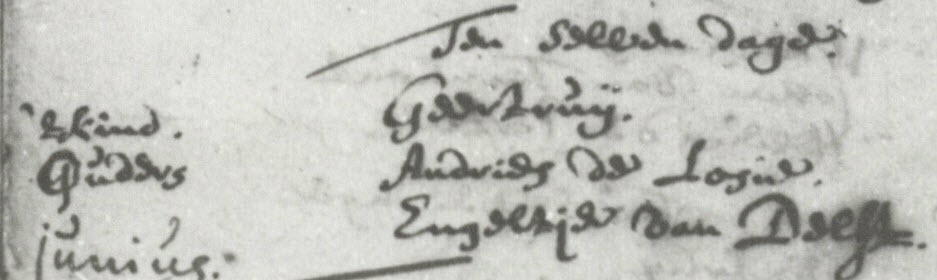 Ten selven dage.
tkind. Geertruij.
Ouders Andries de Losie.
Engeltje van Delft.
junius.